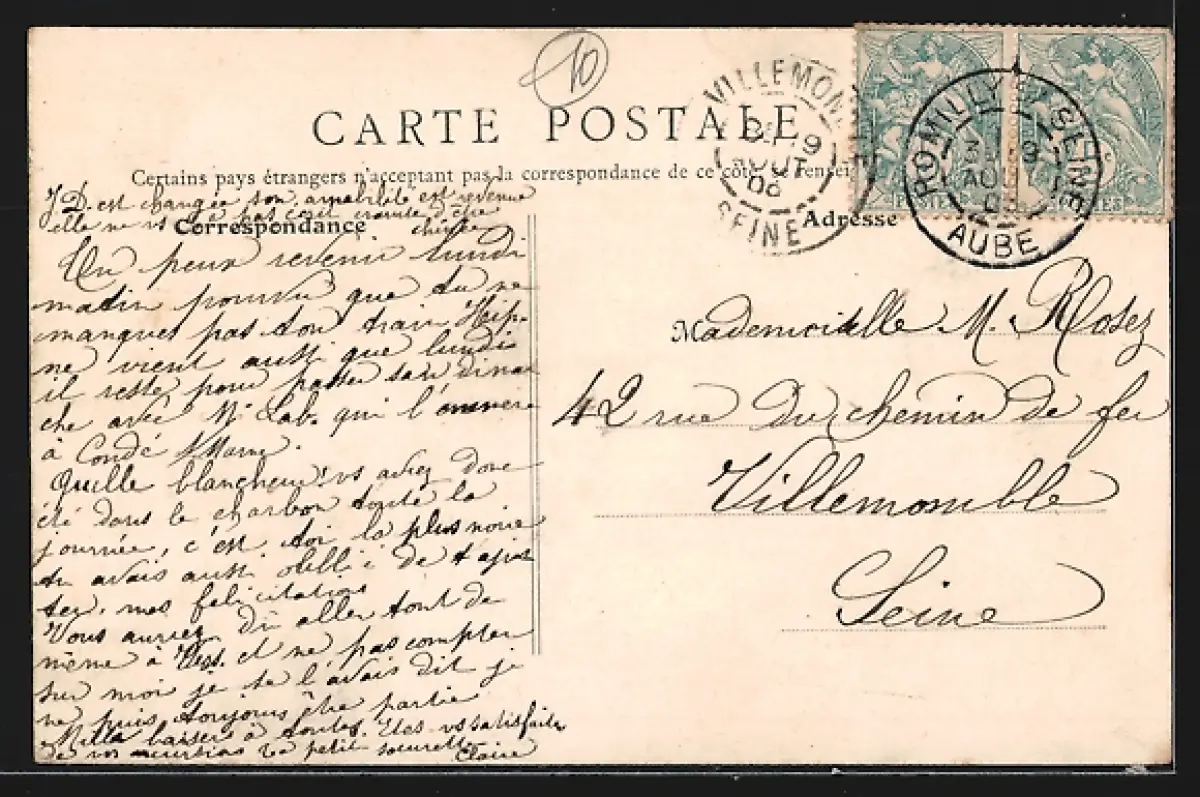 10
CARTE POSTALE
Certains pays étrangers n'acceptant pas la correspondance de ce côté, se rensei
VILLEMOM
9
AOUT
06
SEINE
ROMILLY S SEINE
9
AOU
AUBE
POSTES
J D. est changée son amabilité est revenue
elle ne vs a pas écrit crainte d'être
Correspondance
Adresse
On peux revenir lundi
matin pourvu que tu ne
manques pas ton train.
ne vient aussi que lundi
il reste pour passer son diman
che avec M. Lab. qui l'emmène
à Condé s/Marne.
Quelle blancheur! vs aviez donc
été dans le charbon toute la
journée, c'est toi la plus noire
tu avais aussi oublié de t'ajou
ter. mes félicitations
Vous auriez dû aller tout de
même à et ne pas compter
sur moi je te l'avais dit je
ne puis toujours être partie
Mille baisers à toutes. Etes vs satisfaite
de vos La petite soeurette
Claire
Mademoiselle M. Rosez
42 rue Du chemin de fer
Villemomble
Seine